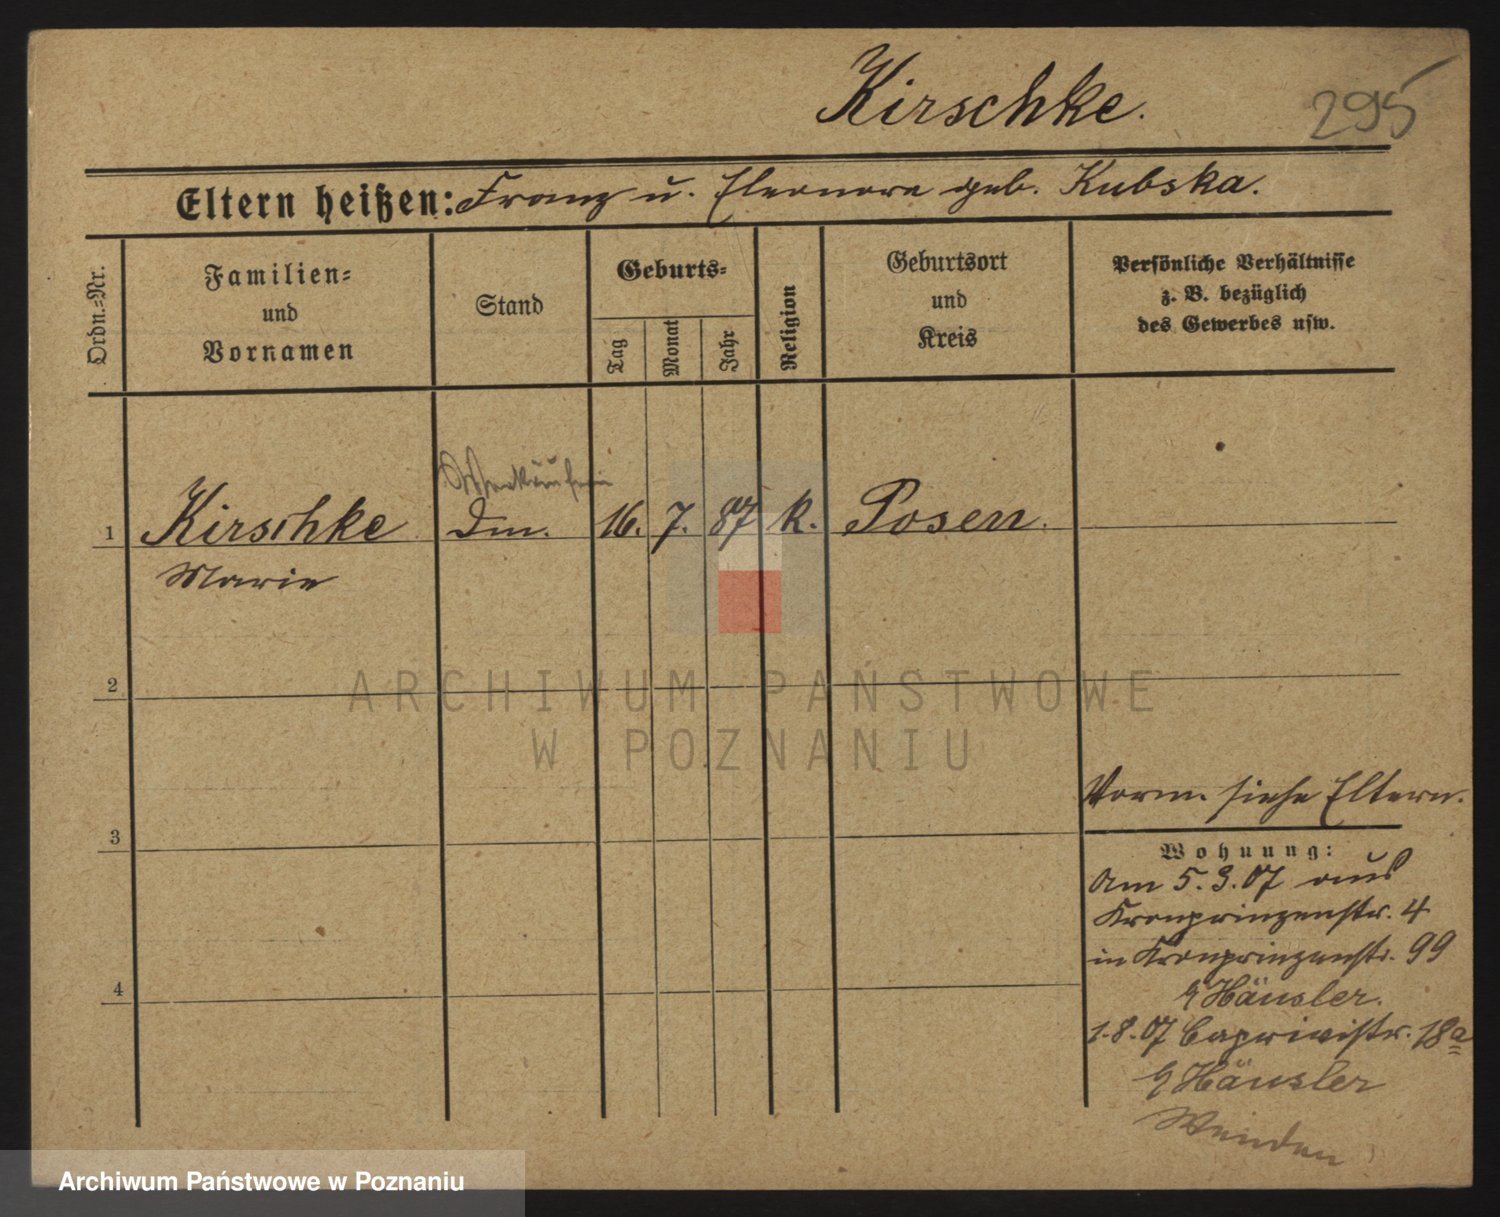 Kirschke.
295
Eltern heißen: Franz u. Eleonore geb. Kubska.
Ordn.=Nr.
Familien=
und
Vornamen
Stand
Geburts=
Tag
Monat
Jahr
Religion
Geburtsort
und
Kreis
Persönliche Verhältnisse
z. B. bezüglich
des Gewerbes usw.
1 Kirschke Dm. 16. 7. 87 k. Posen.
Marie
2
ARCHIWUM PAŃSTWOWE
W POZNANIU
Vorm. siehe Eltern.
3
Wohnung:
Am 5.3.07 aus
Kronprinzenstr. 4
in Kronprinzenstr. 99
Häusler.
4
1.8.07 Caprivistr. 18a
Häusler
Wenden!
Archiwum Państwowe w Poznaniu